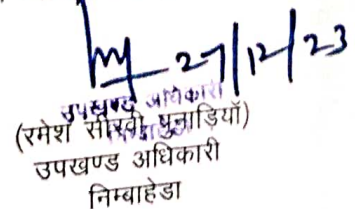 27/12/23
उपखण्ड अधिकारी
(रमेश सीरवी पुनाड़ियाँ)
उपखण्ड अधिकारी
निम्बाहेडा